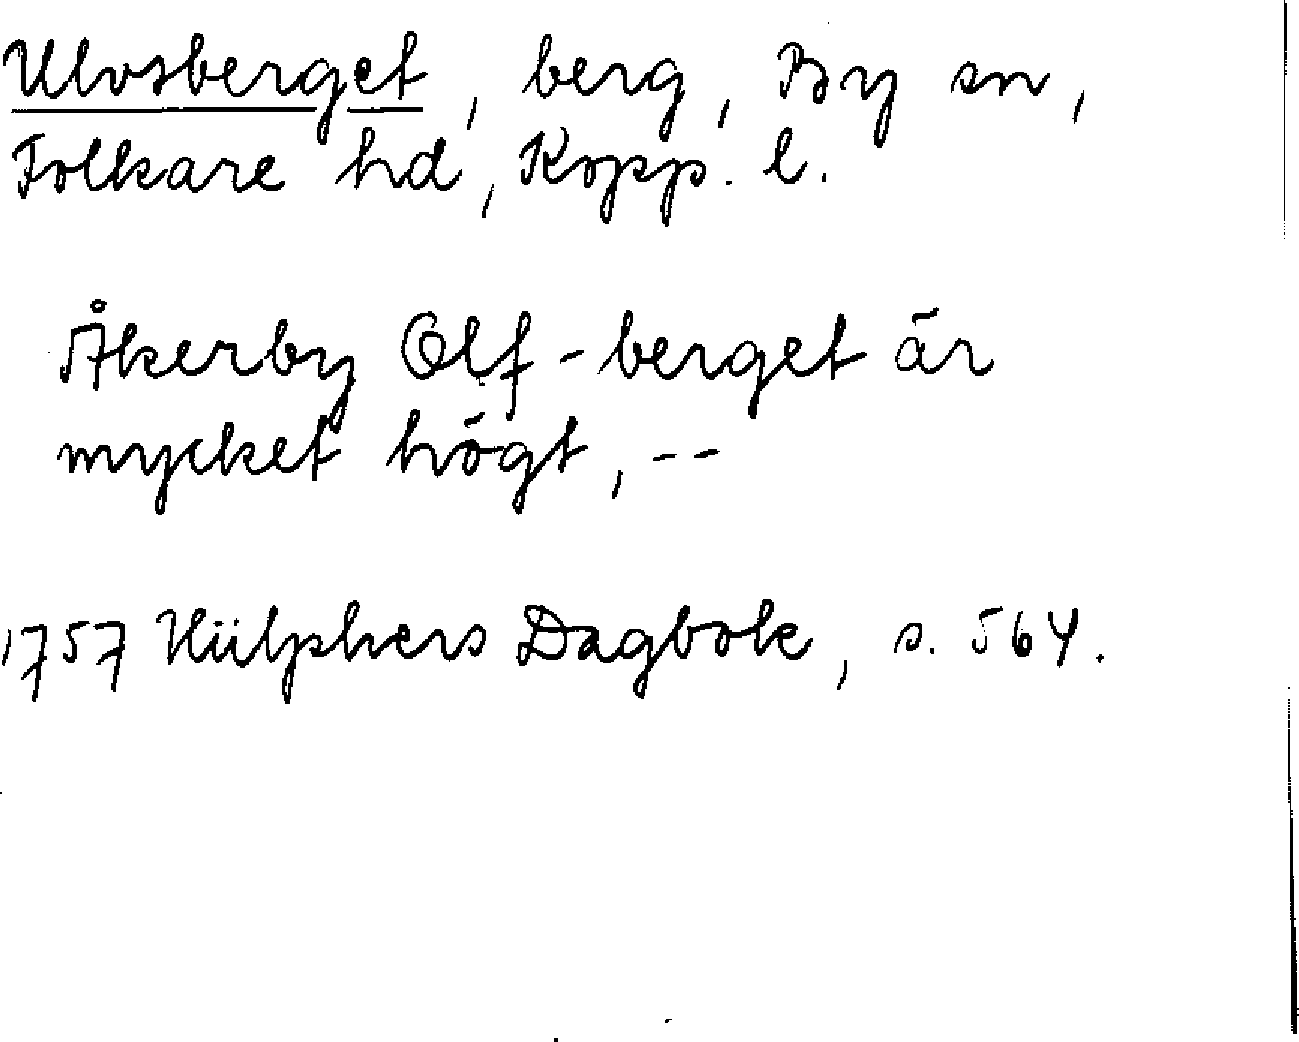 Ulvsberget, berg, By sn,
Folkare hd, Kopp. l.
Åkerby Olf-berget är
mycket högt, --
1757 Hülphers Dagbok, s. 564.